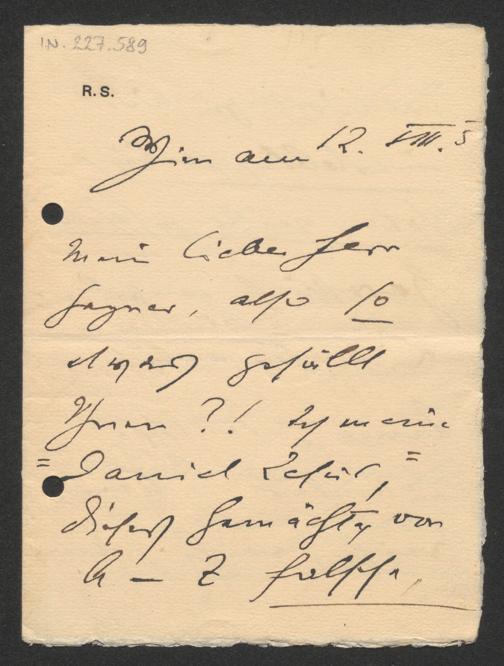 IN. 227.589
R. S.
Wien am 12. VIII. 5
Mein lieber Herr
Wagner, also so
etwas gefällt
Ihnen?! Ich meine
"Daniel
dieses Gemächte von
A – Z falsche,